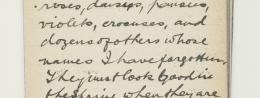 roses, daisys, pansies,
violets, crocuses, and
dozens of others whose
names I have forgotten.
They just look good in
the spring when they are